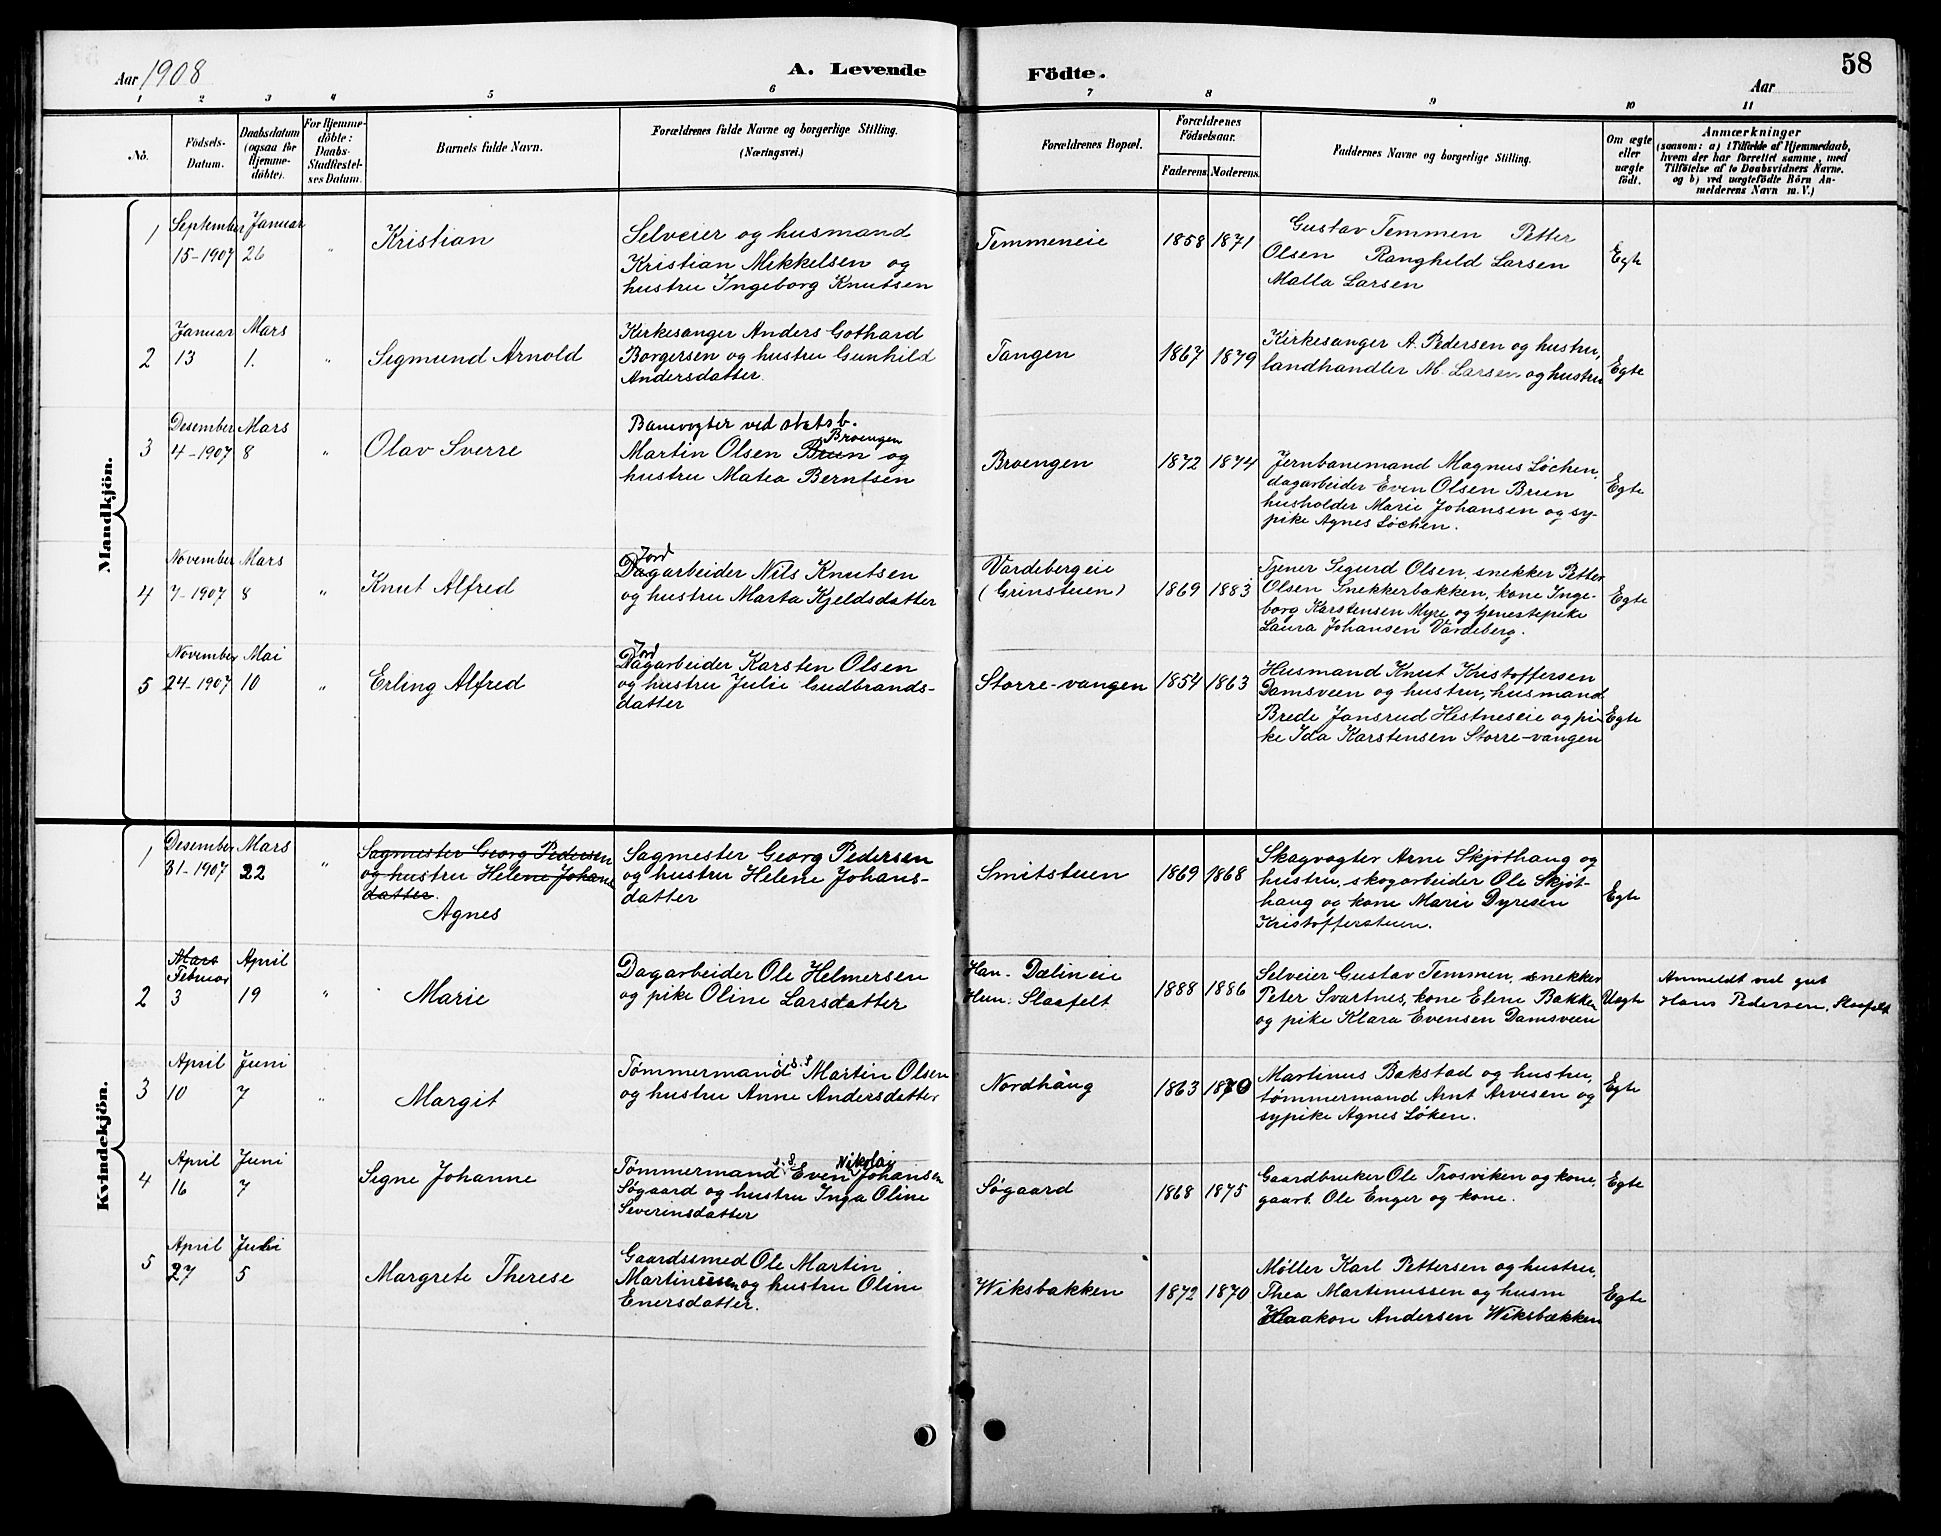 Aar 1908
A. Levende Födte.
Aar
58
1 2 3 4 5 6 7 8 9 10 11
No.
Födsels-
Datum.
Daabsdatum
(ogsaa for
Hjemme-
döbte).
For Hjemme-
döbte:
Daabs-
Stadfæstel-
ses Datum.
Barnets fulde Navn.
Forældrenes fulde Navne og borgerlige Stilling.
(Næringsvei.)
Forældrenes Bopæl.
Forældrenes
Födselsaar.
Faderens. Moderens.
Faddernes Navne og borgerlige Stilling.
Om ægte
eller
uægte
født.
Anmærkninger
(saasom: a) i Tilfælde af Hjemmedaab,
hvem der har forrettet samme, med
Tilföielse af to Daabsvidners Navne,
og b) ved uægtefødte Börn An-
melderens Navn m. V.)
Mandkjön.
1
September
15-1907
Januar
26
"
Kristian
Selveier og husmand
Kristian Mikkelsen og
hustru Ingeborg Knutsen
Temmeneie
1858 1871
Gustav Temmen Petter
Olsen Ranghild Larsen
Malla Larsen
Egte
2
Januar
13
Mars
1.
"
Segmund Arnold
Kirkesanger Anders Gothard
Borgersen og hustru Gunhild
Andersdatter.
Tangen
1867 1879
Kirkesanger A. Pedersen og hustru,
landhandler M. Larsen og hustru
Egte
3
Desember
4-1907
Mars
8
"
Olav Sverre
Banevogter ved statsb.
Broengen
Martin Olsen Brun og
hustru Matea Berntsen
Broengen
1872 1874
Jernbanemand Magnus Løchen,
dagarbeider Even Olsen Brun
husholder Marie Johansen og sy-
pike Agnes Løchen.
Egte
4
November
7-1907
Mars
8
"
Knut Alfred
Jord
Dagarbeider Nils Knutsen
og hustru Marta Kjeldsdatter
Vardebergeie
(Grinstuen)
1869 1883
Tjener Sigurd Olsen, snekker Petter
Olsen Snekkerbakken, kone Inge-
borg Karstensen Myre og tjenestepike
Laura Johansen Vardeberg.
Egte
5
November
24-1907
Mai
10
"
Erling Alfred
Jord
Dagarbeider Karsten Olsen
og hustru Julie Gudbrands-
datter
Storre-vangen
1854 1863
Husmand Knut Kristoffersen
Damsveen og hustru, husmand
Brede Jonsrud Hestneseie og pi-
ke Ida Karstensen Storre-vangen
Egte
Kvindekjön.
1
Desember
31-1907
Mars
22
"
Sagmester Georg Pedersen
og hustru Helene Johans
datter.
Agnes
Sagmester Georg Pedersen
og hustru Helene Johans-
datter
Smitstuen
1869 1868
Skogvogter Arne Skjøthaug og
hustru, skogarbeider Ole Skjøt-
haug og kone Marie Dyresen
Kristofferstuen.
Egte
2
Mars
Februar
3
April
19
"
Marie
Dagarbeider Ole Helmersen
og pike Oline Larsdatter
Han- Dælineie
Hun: Slaafelt
1888 1886
Selveier Gustav Temmen, snekker
Peter Svartnes, kone Eline Bakken
og pike Klara Evensen Damsveen
Uegte
Anmeldt ved gut
Hans Pedersen, Slaafelt
3
April
10
Juni
7
"
Margit
Tømmermand s. S. Martin Olsen
og hustru Anne Andersdatter
Nordhaug
1863 1870
Martinus Bakstad og hustru,
tømmermand Arnt Arvesen og
sypike Agnes Løken.
Egte
4
April
16
Juni
7
Signe Johanne
Nikolai
Tømmermand s. S. Even Johansen
Søgaard og hustru Inga Oline
Severensdatter
Søgaard
1868 1875
Gaardbruker Ole Trosviken og kone,
gaarb. Ole Enger og kone.
Egte
5
April
27
Juli
5
Margrete Therese
Gaardssmed Ole Martin
Martinsen og hustru Oline
Enersdatter.
Wiksbakken
1872 1870
Møller Karl Pettersen og hustru,
Thea Martinussen og husm
Haakon Andersen Wiksbakken
Egte